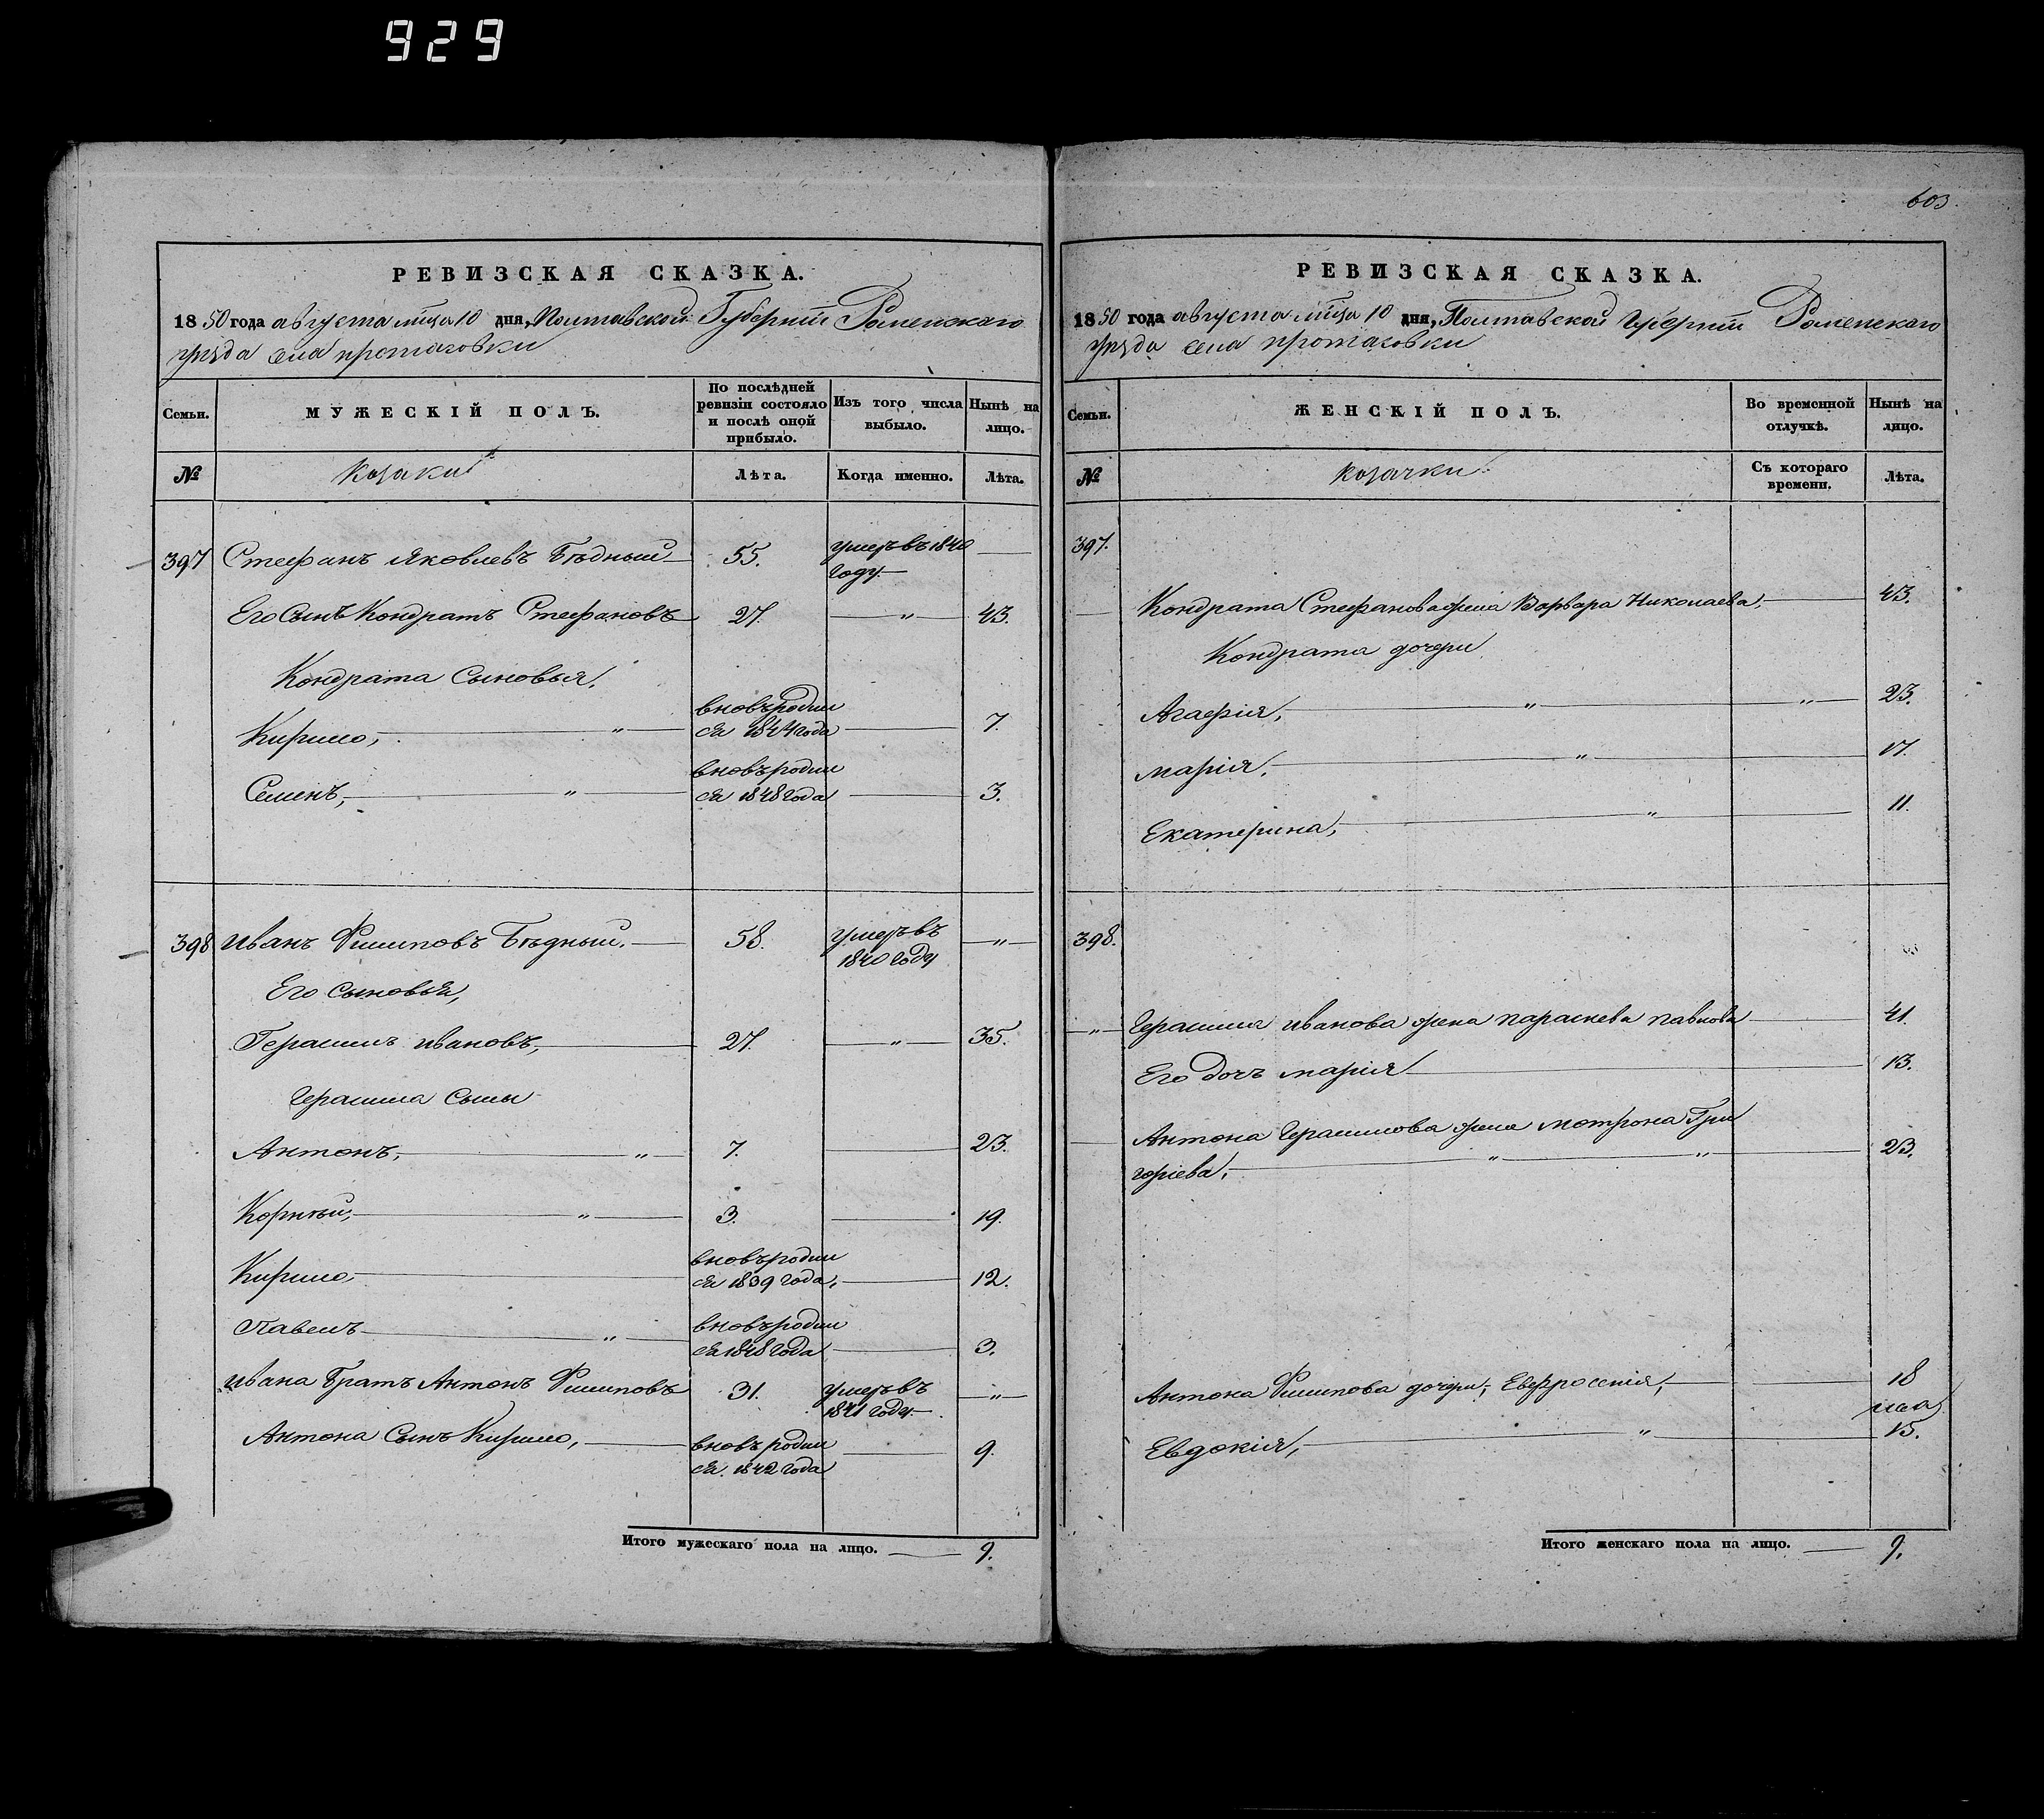 929
РЕВИЗСКАЯ СКАЗКА.
1850 года августа мца 10 дня, Полтавской Губерніи Роменскаго
уезда села протасовки
Семьи.
МУЖЕСКІЙ ПОЛЪ.
По послѣдней ревизіи состояло и послѣ оной прибыло.
Изъ того числа выбыло.
Нынѣ на лицо.
№
козаки
Лѣта.
Когда именно.
Лѣта.
397 Стефанъ Яковлевъ Бѣдный 55. умеръ въ 1840 году —
Его Сынъ Кондратъ Стефановъ 27. — " — 43.
Кондрата Сыновья,
Кирило, — " — вновь родил ся 1844 года — 7.
Семенъ, — " — вновь родил ся 1848 года — 3.
398 Иванъ Филиповъ Бѣдный. — 58. умеръ въ 1840 году — " —
Его сыновья,
Герасимъ ивановъ, — 27. — " — 35.
Герасима Сыны
Антонъ, — " — 7. — 23.
Корнѣй, — " — 3. — 19.
Кирило, — вновь родил ся 1839 года, — 12.
Павелъ — " — вновь родил ся 1848 года — 3.
Ивана Братъ Антонъ Филиповъ 31. умеръ въ 1841 году. — " —
Антона Сынъ Кирило, — вновь родил ся. 1842 года — 9.
Итого мужескаго пола на лицо. — 9.
603
РЕВИЗСКАЯ СКАЗКА.
1850 года августа мца 10 дня, Полтавской Губерніи Роменскаго
уезда села протасовки
Семьи.
ЖЕНСКІЙ ПОЛЪ.
Во временной отлучкѣ.
Нынѣ на лицо.
№
козачки
Съ котораго времени.
Лѣта.
397.
Кондрата Стефанова жена Варвара Николаева, — 43.
Кондрата дочери
Агафія, — " — " — 23.
Марія, — " — 17.
Екатерина, — " — 11.
398.
— " — Герасима иванова жена параскева павлова — 41.
Его дочь марія — 13.
Антона Герасимова жена мотрона Гри
горіева, — " — " — 23.
Антона Филипова дочери, Евфросенія, — 18
Евдокія, — " — 15.
Итого женскаго пола на лицо. — 9.